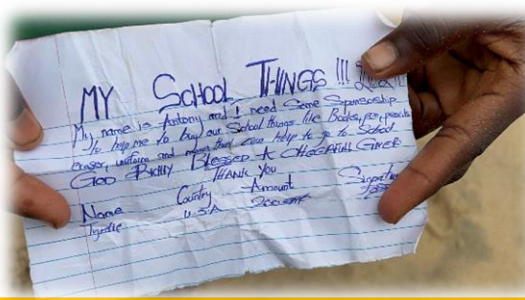 MY SCHOOL THINGS !!!
My name is Antony and I need Some Sponsorship
to help me to buy our School things like Books, pen, pencils
eraser, uniform and more that can help to go to School
GOD RICHLY BLESSED A CHEERFULL GIVER
THANK YOU
Name Country Amount
U.S.A